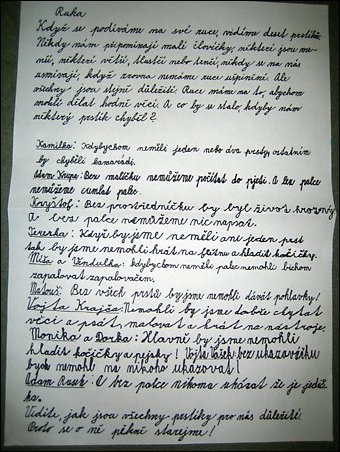 Ruka
Když se podíváme na své ruce, vidíme deset prstíků.
Někdy nám připomínají malé človíčky, někteří jsou me-
nší, někteří větší, tlustší nebo tenčí, někdy se na nás
usmívají, když zrovna nemáme ruce ušpiněné. Ale
všechny jsou stejně důležité. Ruce máme na to, abychom
mohli dělat hodně věcí. A co by se stalo, kdyby nám
některý prstík chyběl?
Kamilka: Kdybychom neměli jeden nebo dva prsty, ostatním
by chyběli kamarádi.
Adam Krupa: Bez malíčku nemůžeme počítat do pěti. A bez palce
nemůžeme cumlat palec.
Kryštof: Bez prostředníčku by byl život hrozný
A bez palce nemůžeme nic napsat.
Terezka: Když by jsme neměli ani jeden prst
tak by jsme nemohli hrát na flétnu a hladit kočičky.
Míša a Vendulka: kdybychom neměli palec nemohli bichom
zapalovat zapalovačem.
Matouš: Bez všech prstů by jsme nemohli dávát pohlavky!
Vojta Krajča: Nemohli by jsme dobře chytat
věci a psát, malovat a hrát na nástroje.
Monika a Dorka: Hlavně by jsme nemohli
hladit kočičky a pejsky! Vojta Vašek: bez ukazováčku
bych nemohl na nikoho ukazovat!
Adam Rusek: A bez palce nikomu ukázat že je jednič-
ka.
Vidíte, jak jsou všechny prstíky pro nás důležité.
Proto se o ně pěkně starejme!